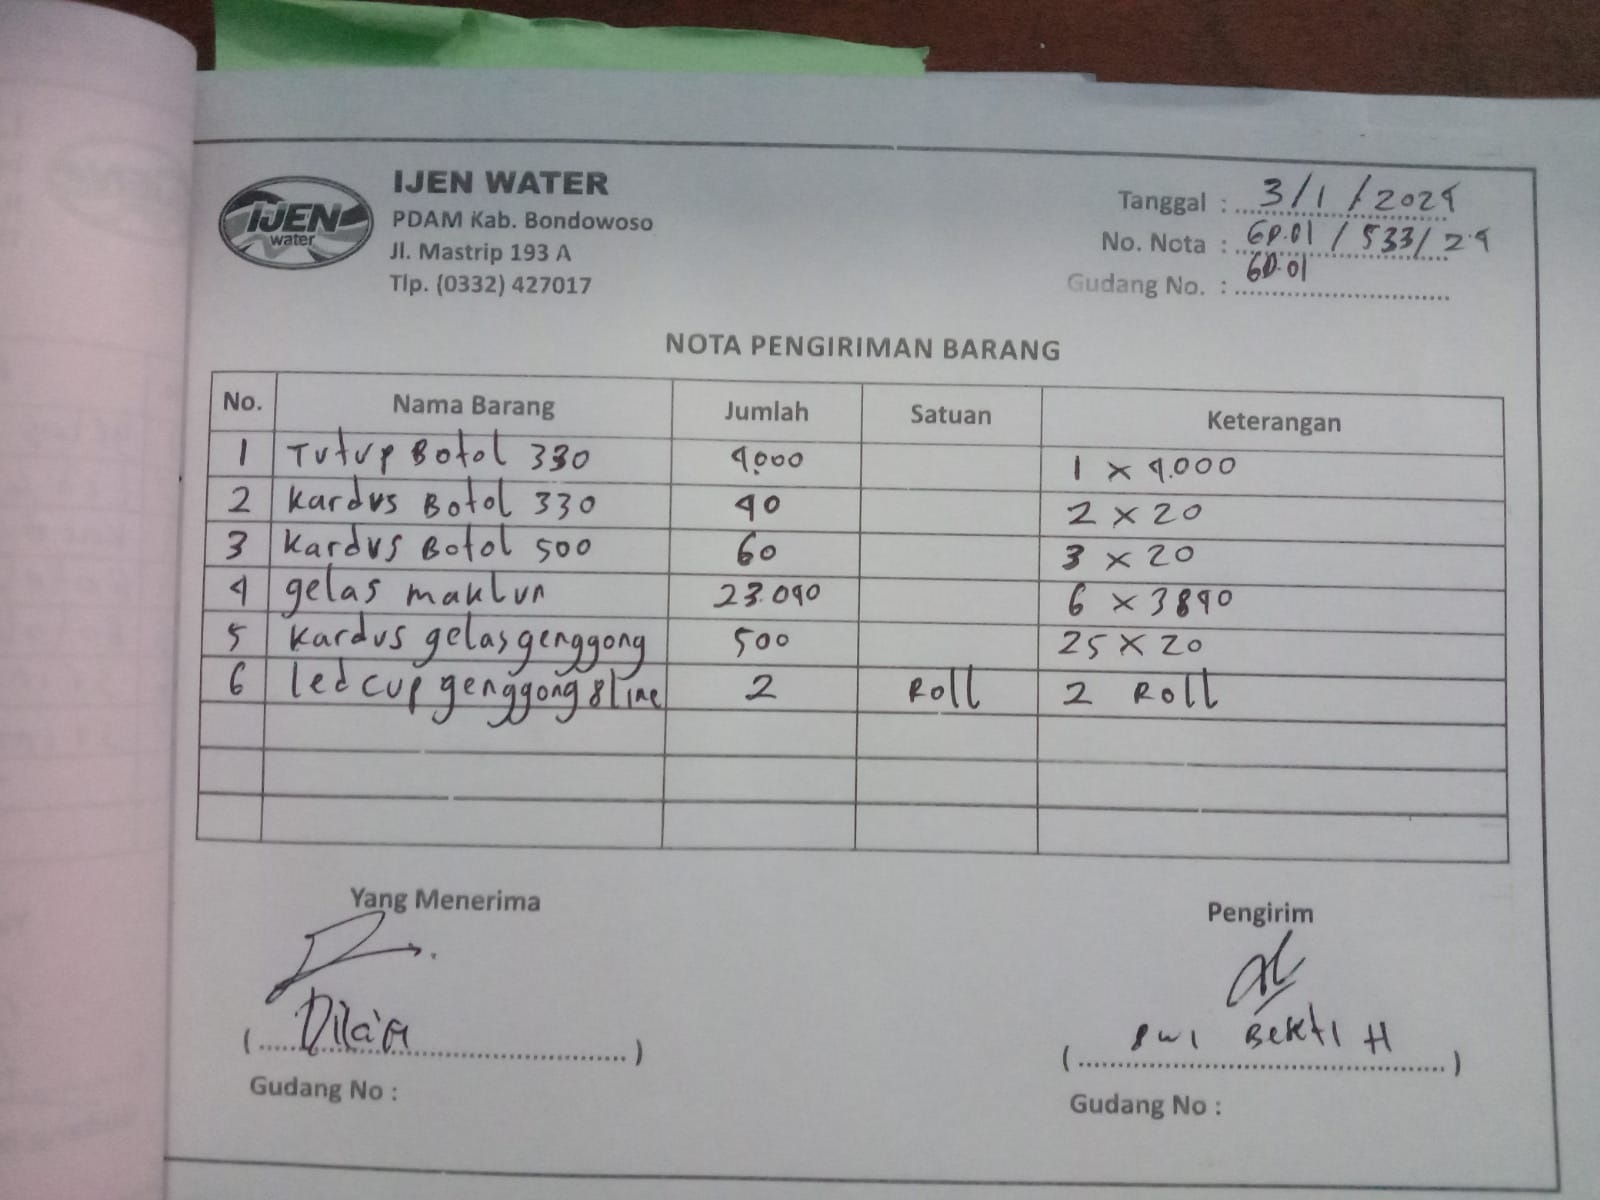 IJEN
water
IJEN WATER
PDAM Kab. Bondowoso
Jl. Mastrip 193 A
Tlp. (0332) 427017
Tanggal : 3/1/2024
No. Nota : GD.01 / 533/24
Gudang No. : GD.01
NOTA PENGIRIMAN BARANG
No. Nama Barang Jumlah Satuan Keterangan
1 Tutup Botol 330 4.000 1 x 4.000
2 Kardus Botol 330 40 2 x 20
3 Kardus Botol 500 60 3 x 20
4 gelas maklun 23.040 6 x 3840
5 Kardus gelas genggong 500 25 x 20
6 led cup genggong 8 line 2 Roll 2 Roll
Yang Menerima
Pengirim
( )
( Dwi Bekti H )
Gudang No :
Gudang No :